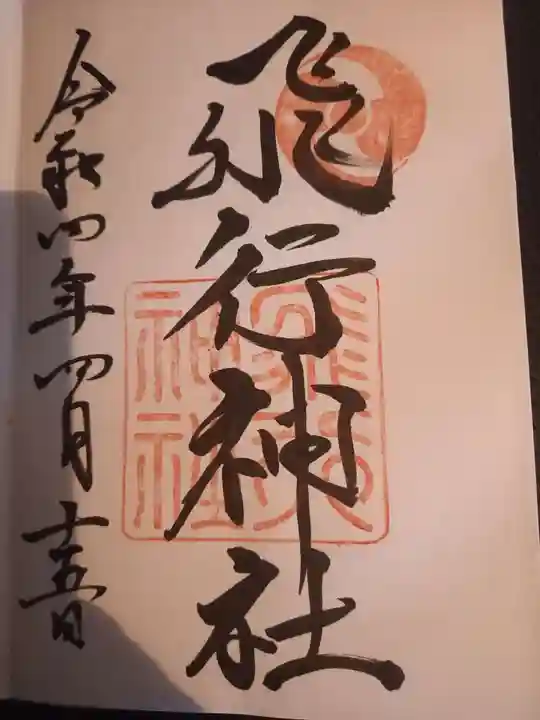 飛行神社
令和四年四月十五日
飛行神社